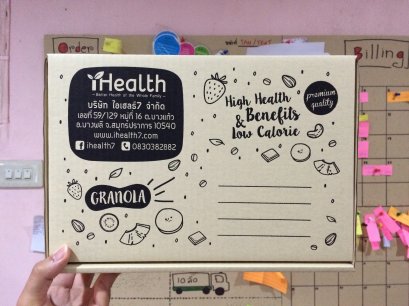 Order
Billing
iHealth
Better Health of the Whole Family
บริษัท ไอเฮลธ์7 จำกัด
เลขที่ 59/129 หมู่ที่ 16 ต.บางแก้ว
อ.บางพลี จ.สมุทรปราการ 10540
www.ihealth7.com
ihealth7 0830382882
High Health
& Benefits
Low Calorie
premium
quality
GRANOLA
10 ล้อ